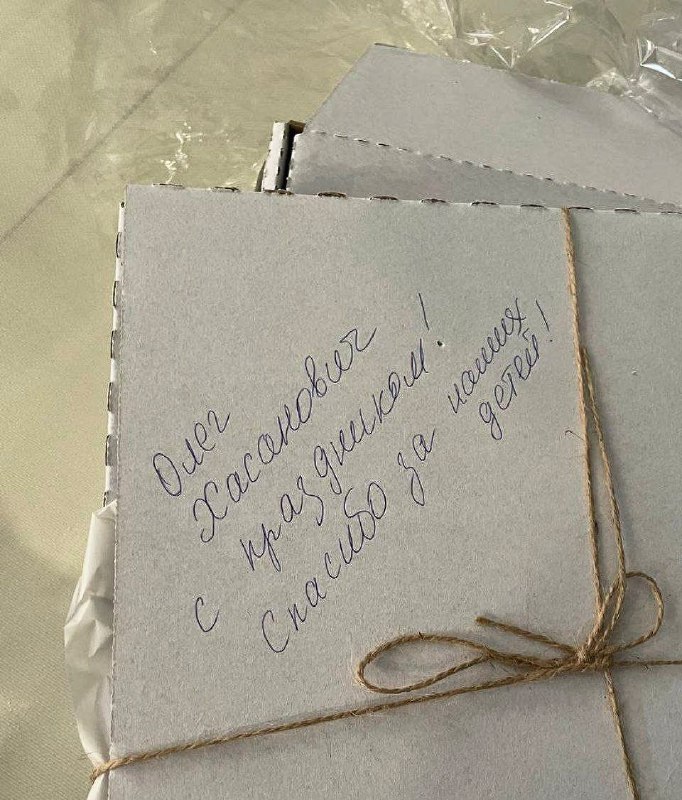 Олег
Хасанович
с праздником!
Спасибо за наших
детей!